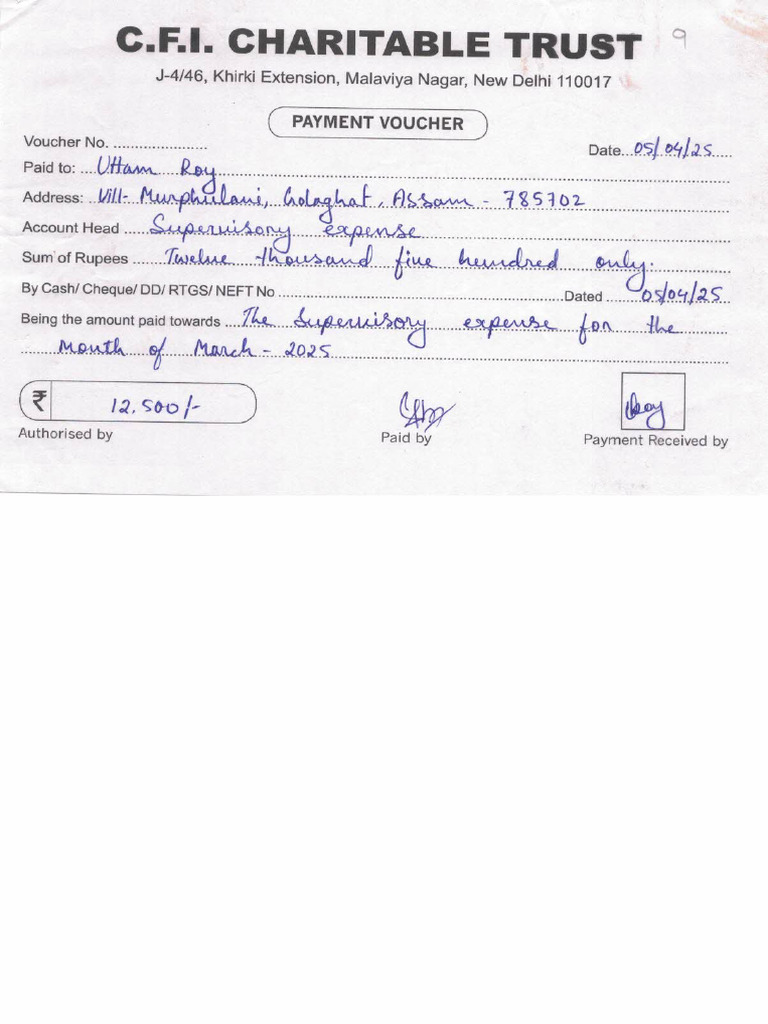 C.F.I. CHARITABLE TRUST 9
J-4/46, Khirki Extension, Malaviya Nagar, New Delhi 110017
PAYMENT VOUCHER
Voucher No. ......................
Date...05/04/25.....
Paid to: ....Uttam Roy..............................
Address: ..Vill- Murphulani, Golaghat, Assam - 785702
Account Head ......Supervisory expense..............................
Sum of Rupees ......Twelve thousand five hundred only.
By Cash/ Cheque/ DD/ RTGS/ NEFT No ..............................Dated ........05/04/25
Being the amount paid towards ...The Supervisory expense for the
Month of March - 2025
₹ 12,500/-
Roy
Authorised by Paid by Payment Received by